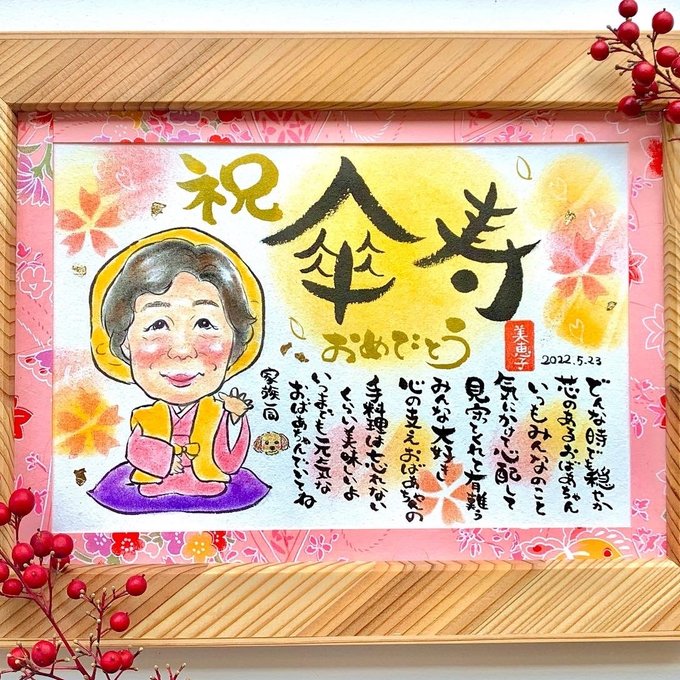 祝
傘寿
おめでとう
美恵子
2022.5.23
どんな時でも穏やか
芯のあるおばあちゃん
いつもみんなのこと
気にかけて心配して
見守ってくれて有難う
みんな大好き
心の支えおばあちゃんの
手料理は忘れない
くらい美味しいよ
いつまでも元気な
おばあちゃんでいてね
家族一同